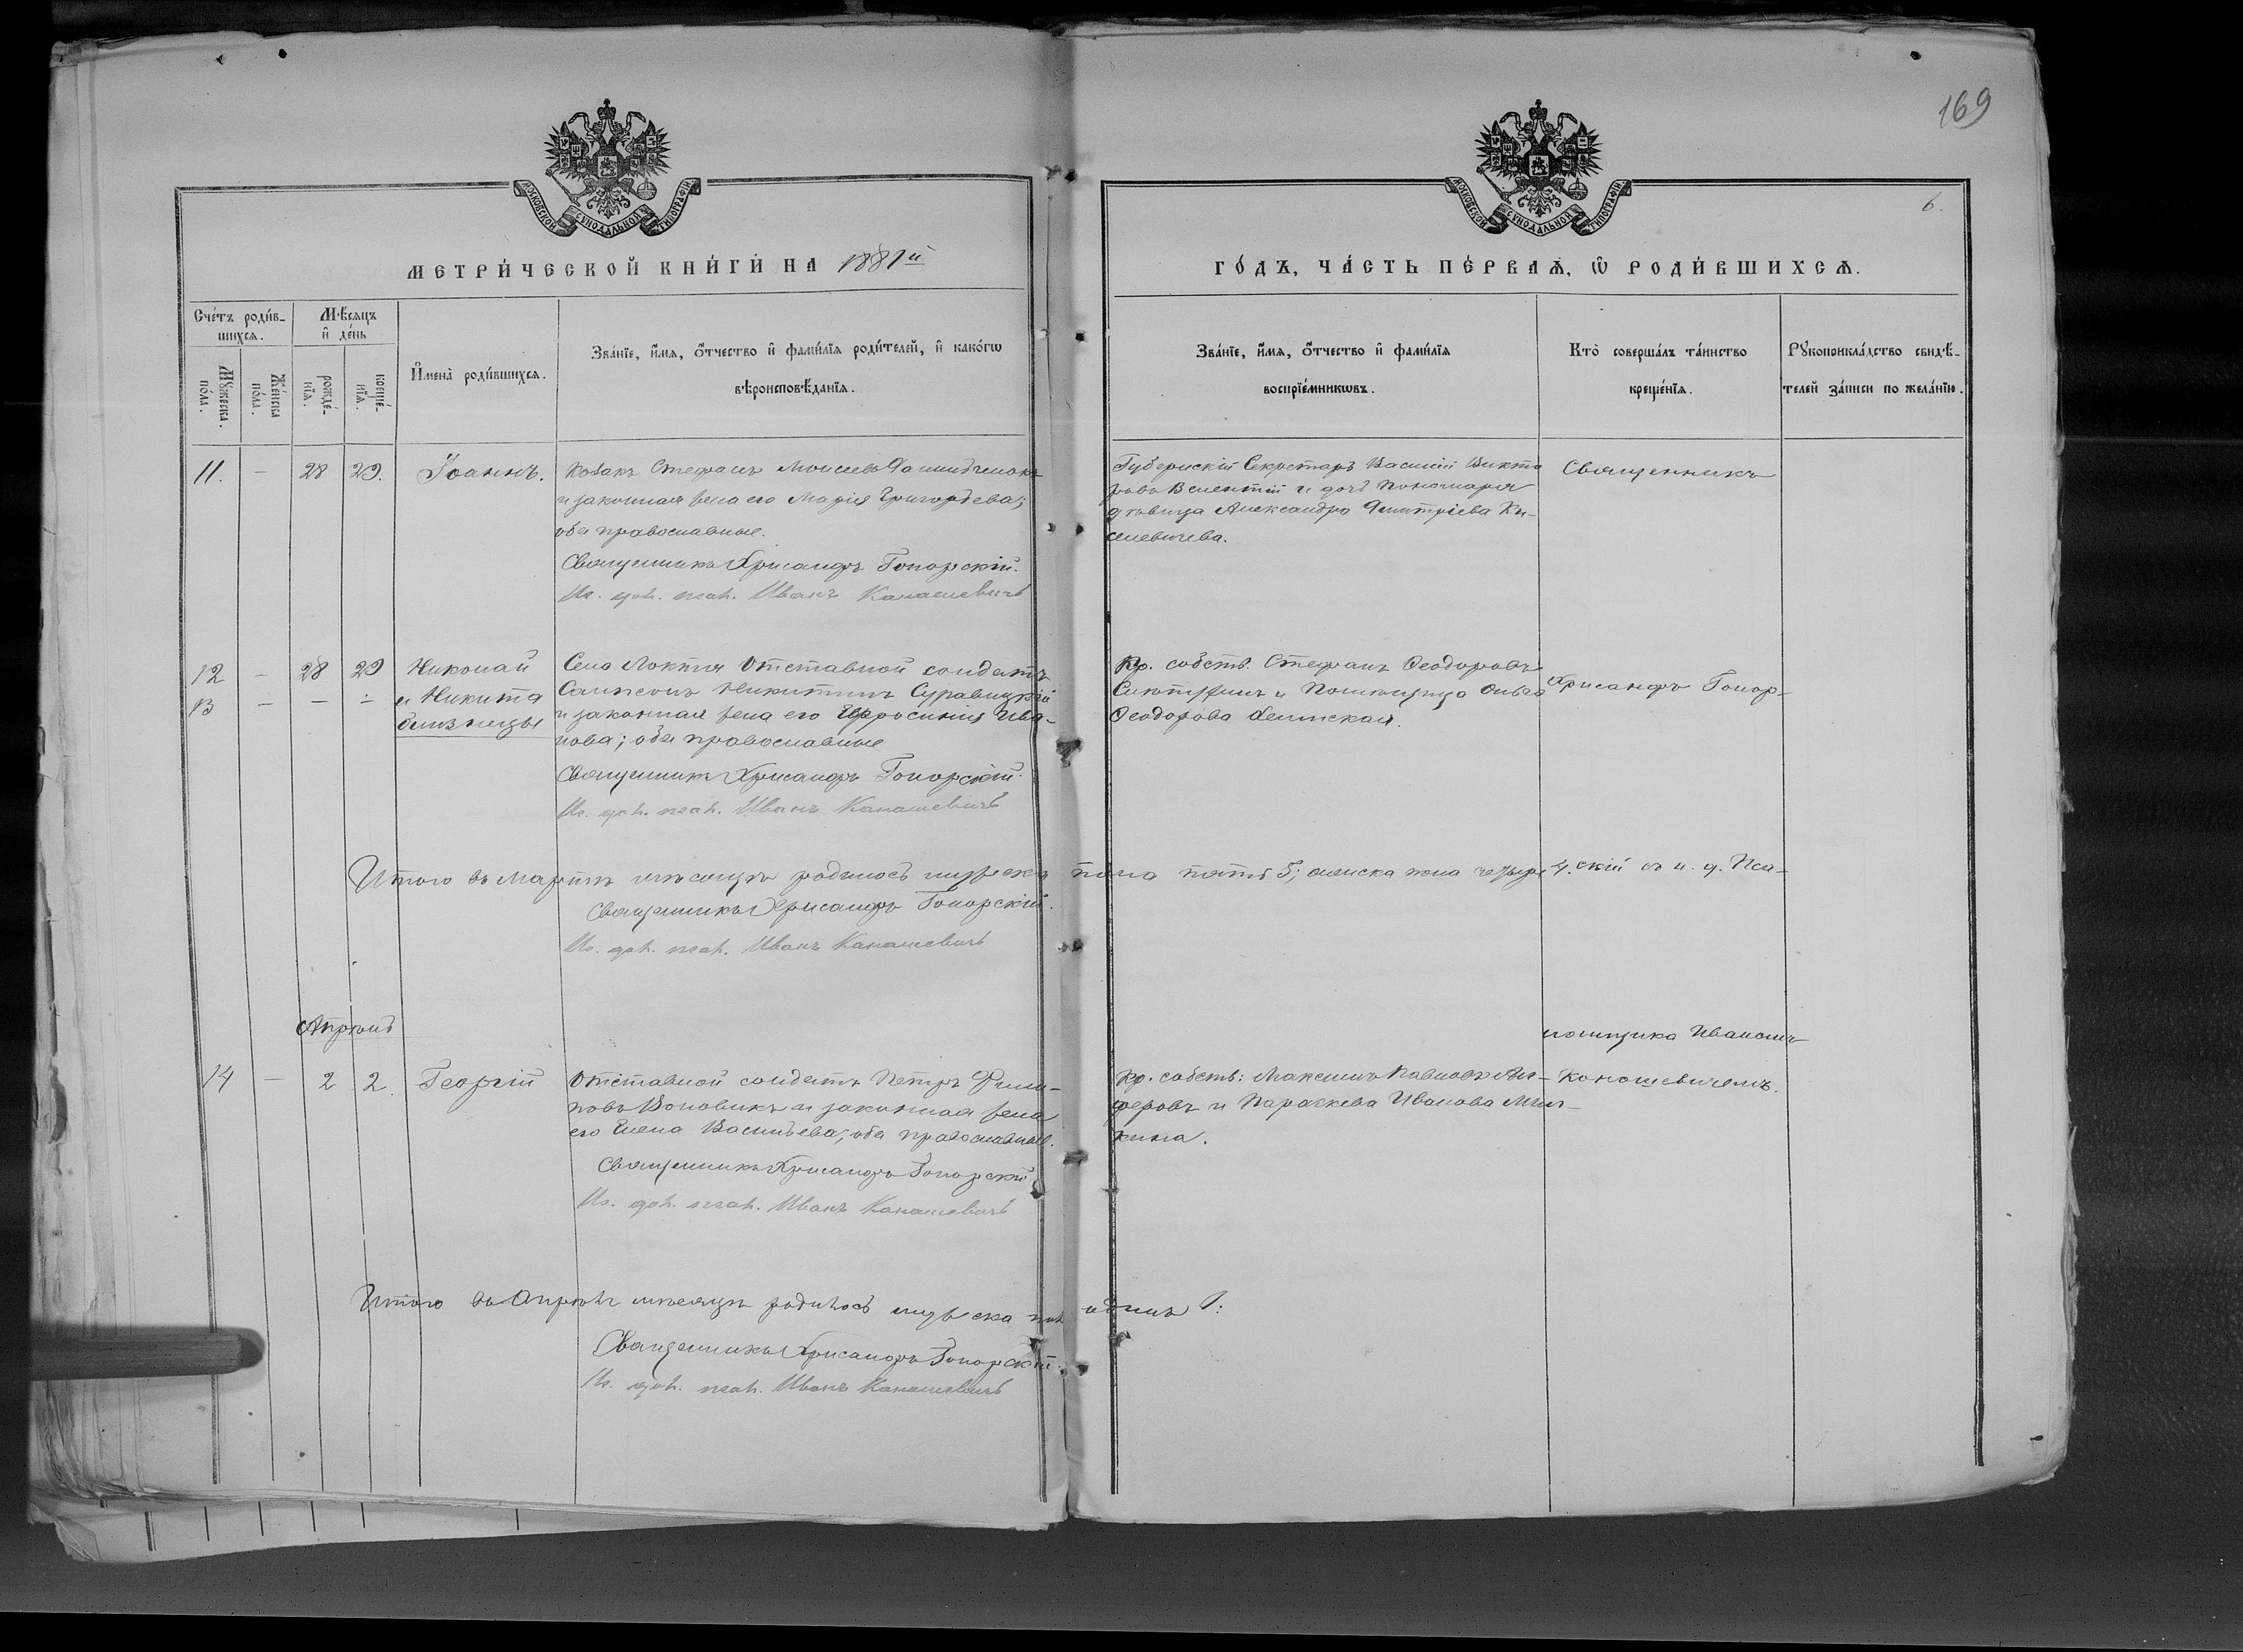 169
6.
МОСКОВСКОЙ СУНОДАЛЬНОЙ ТИПОГРАФІИ
МОСКОВСКОЙ СУНОДАЛЬНОЙ ТИПОГРАФІИ
МЕТРИ́ЧЕСКОЙ КНИ́ГИ НА 1881й
ГО́ДЪ, ЧА́СТЬ ПЕ́РВАѦ, Ѿ РОДИ́ВШИХСѦ.
Сче́тъ роди́в-
шихсѧ.
Мѣ́сѧцъ
и҆ де́нь
Му́жеска по́ла.
Же́нска по́ла.
рожде́-
нїѧ.
креще́-
нїѧ.
И҆мена̀ роди́вшихсѧ.
Зва́нїе, и҆́мѧ, ѻ҆́тчество и҆ фами́лїѧ роди́телей, и҆ како́гѡ
вѣроисповѣ́данїѧ.
Зва́нїе, и҆́мѧ, ѻ҆́тчество и҆ фами́лїѧ
воспрїе́мникѡвъ.
Кто̀ соверша́лъ та́инство
креще́нїѧ.
Рꙋкоприкла́дство свидѣ́-
телей за́писи по жела́нїю.
11. — 28 29. Іоаннъ. Козакъ Стефанъ Моисеевъ
и законная жена его Марія Григорьева;
оба православные.
Священникъ Хрисанфъ Гонорскій.
Ис. дол. псал. Иванъ Канашевичъ
Губернскій Секретарь Василій Викто
ровъ и дочь Пономаря
дѣвица Александра Димитріева Ки-
селевичева.
Священникъ
12 — 28 29 Николай
13 — — — и Никита
близнецы
Села Локтя Отставной солдатъ
Сампсонъ Никитинъ Суравицкій
и законная жена его Евфросинія Ива-
нова; оба православные
Священникъ Хрисанфъ Гонорскій.
Ис. дол. псал. Иванъ Канашевичъ
Кр. собств. Стефанъ Ѳеодоровъ
и Помѣщица Ольга
Ѳеодорова
Хрисанфъ Гонор-
Итого въ Мартѣ мѣсяцѣ родилось мужеска пола пять 5; женска пола четыре 4.
скій съ и. д. Пса-
Священникъ Хрисанфъ Гонорскій.
Ис. дол. псал. Иванъ Канашевичъ
Апрѣль
ломщика Иваномъ
14 — 2 2. Георгій Отставной солдатъ Петръ Филип-
повъ Воловикъ и законная жена
его Елена Васильева; оба православные.
Священникъ Хрисанфъ Гонорскій
Ис. дол. псал. Иванъ Канашевичъ
Кр. собств: Максимъ Павловъ
и Параскева Иванова
Коношевичемъ.
Итого въ Апрѣлѣ мѣсяцѣ родилось мужеска пол одинъ 1:
Священникъ Хрисанфъ Гонорскій.
Ис. дол. псал. Иванъ Канашевичъ